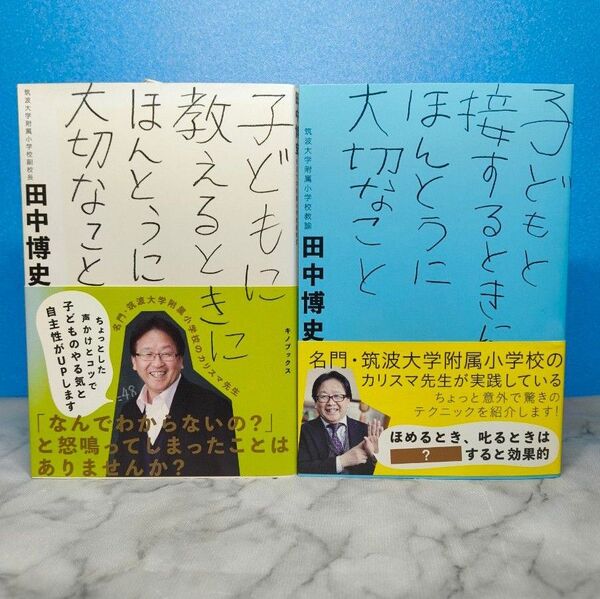 子どもに
教えるときに
ほんとうに
大切なこと
筑波大学附属小学校副校長
田中博史
キノブックス
名門・筑波大学附属小学校のカリスマ先生
ちょっとした
声かけとコツで
子どものやる気と
自主性がUPします
「なんでわからないの?」
と怒鳴ってしまったことは
ありませんか?
子どもと
接するときに
ほんとうに
大切なこと
筑波大学附属小学校教諭
田中博史
名門・筑波大学附属小学校の
カリスマ先生が実践している
ちょっと意外で驚きの
テクニックを紹介します!
ほめるとき、叱るときは
?すると効果的